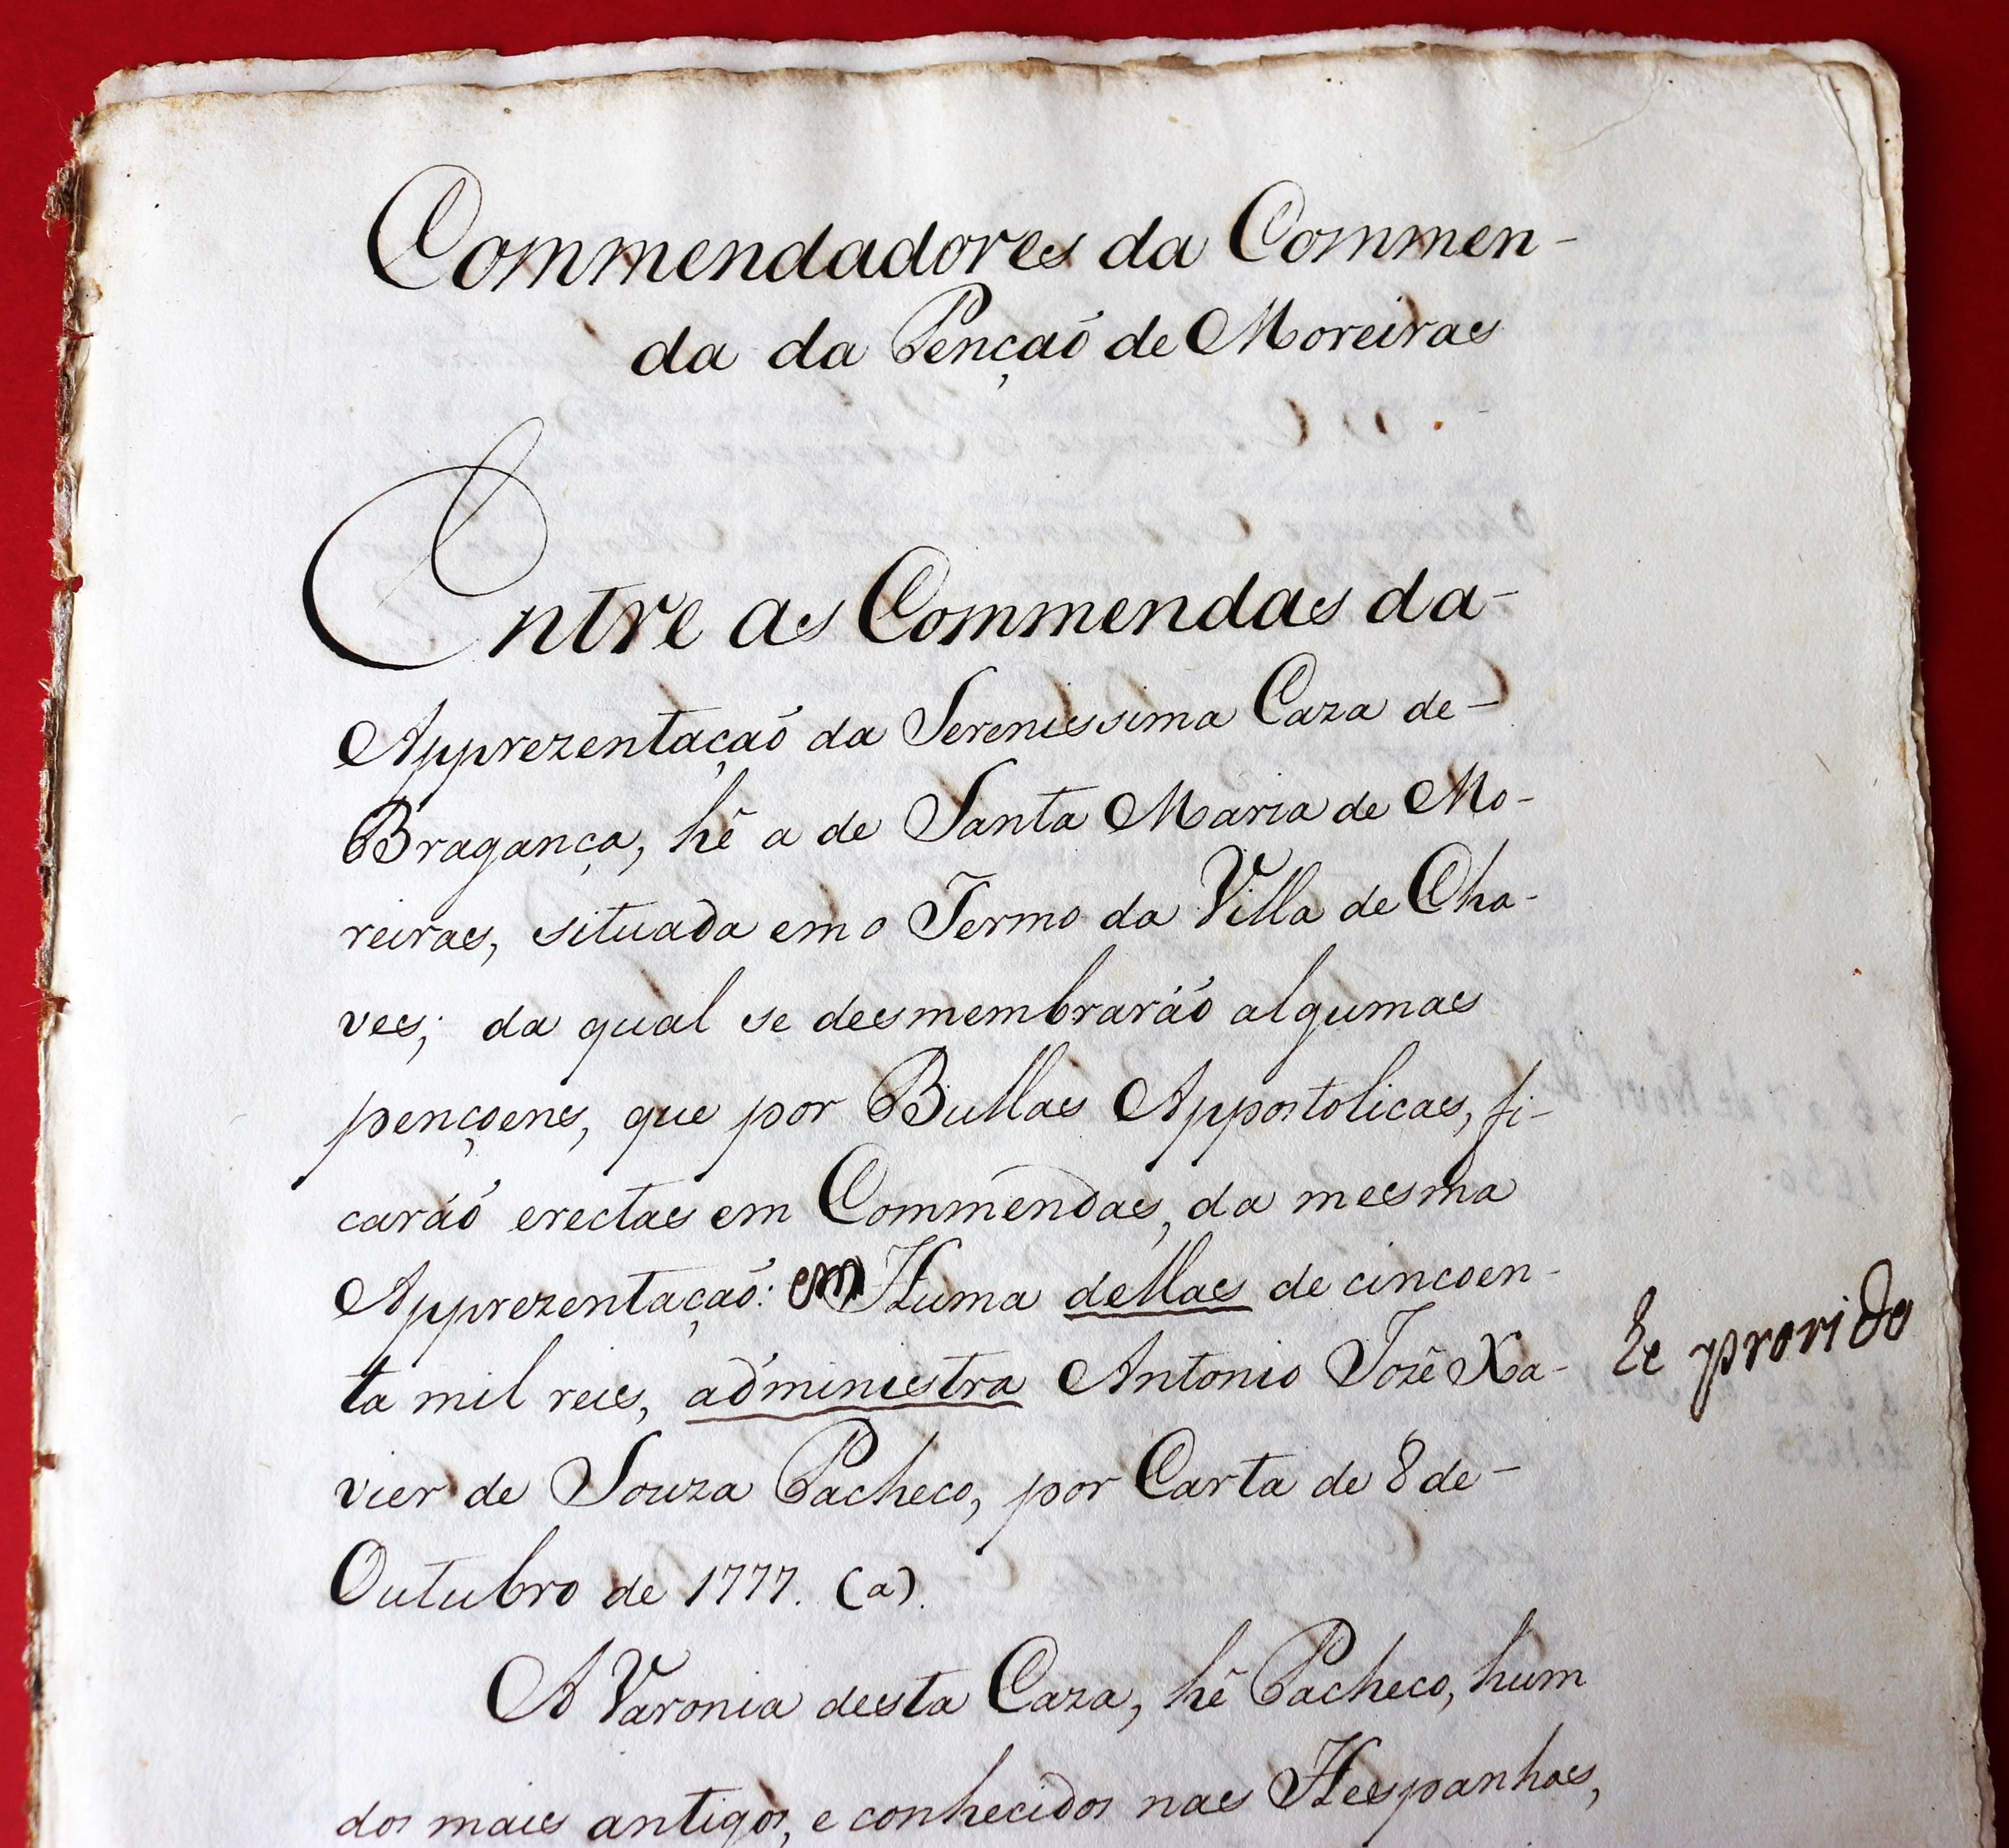 Commendadores da Commen-
da da Pençaó de Moreiras
Entre as Commendas da-
Apprezentaçaó da Serenissima Caza de-
Bragança, hê a de Santa Maria de Mo-
reiras, situada em o Termo da Villa de Cha-
ves; da qual se desmembraráó algumas
pençoens, que por Bullas Appostolicas, fi-
caráó erectas em Commendas, da mesma
Apprezentaçaó: em Huma dellas de cincoen-
ta mil reis, administra Antonio Jozê Xa-
he provido
vier de Souza Pacheco, por Carta de 8 de-
Outubro de 1777. (a).
A Varonia desta Caza, hê Pacheco, hum
dos mais antigos, e conhecidos nas Hespanhas,